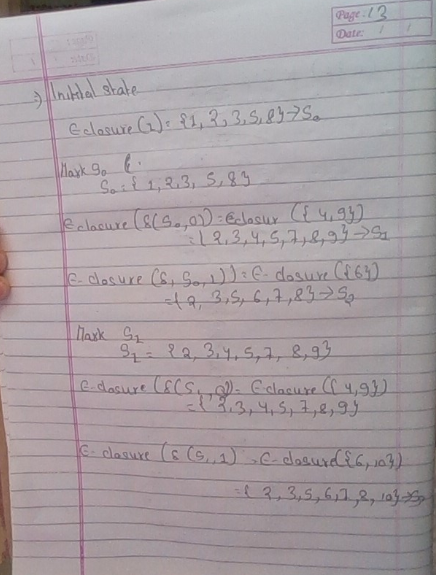 Page: 13
Date: / /
⇒ Initial state
Eclosure(1) = {1, 2, 3, 5, 8} → S₀
Mark S₀ {.
S₀ = { 1, 2, 3, 5, 8}
Eclosure (δ(S₀, 0)) = eclosur ({ 4, 9})
= { 2, 3, 4, 5, 7, 8, 9} → S₁
E-closure (δ, S₀, 1)) = E-closure ({6})
= { 2, 3, 5, 6, 7, 8} → S₂
Mark S₁
S₁ = {2, 3, 4, 5, 7, 8, 9}
E-closure (δ(S₁, 0)) = Eclosure ({ 4, 9})
= { 2, 3, 4, 5, 7, 8, 9}
E-closure (δ (S₁, 1) , E-closure({6, 10})
= { 2, 3, 5, 6, 7, 8, 10} →